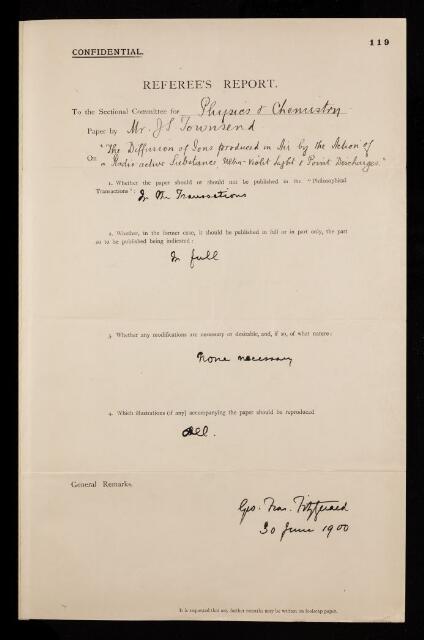 119
CONFIDENTIAL.
REFEREE'S REPORT.
To the Sectional Committee for Physics & Chemistry
Paper by Mr. J S Townsend
"The Diffusion of Ions produced in Air by the Action of
On a Radio-active Substance, Ultra-Violet Light & Point Discharges."
1. Whether the paper should or should not be published in the "Philosophical
Transactions": In the Transactions
2. Whether, in the former case, it should be published in full or in part only, the part
so to be published being indicated:
In full
3. Whether any modifications are necessary or desirable, and, if so, of what nature:
None necessary
4. Which illustrations (if any) accompanying the paper should be reproduced
All.
General Remarks.
Geo. Fras. Fitzgerald
30 June 1900
It is requested that any further remarks may be written on foolscap paper.